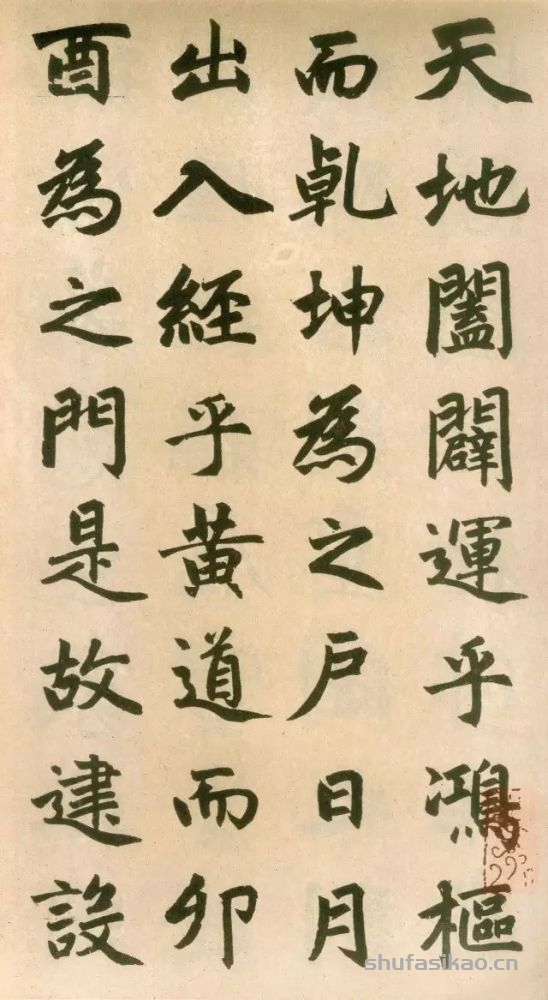 天地闔闢運乎鴻樞
而乹坤為之戶日月
出入經乎黃道而卯
酉為之門是故建設
shufasikao.cn